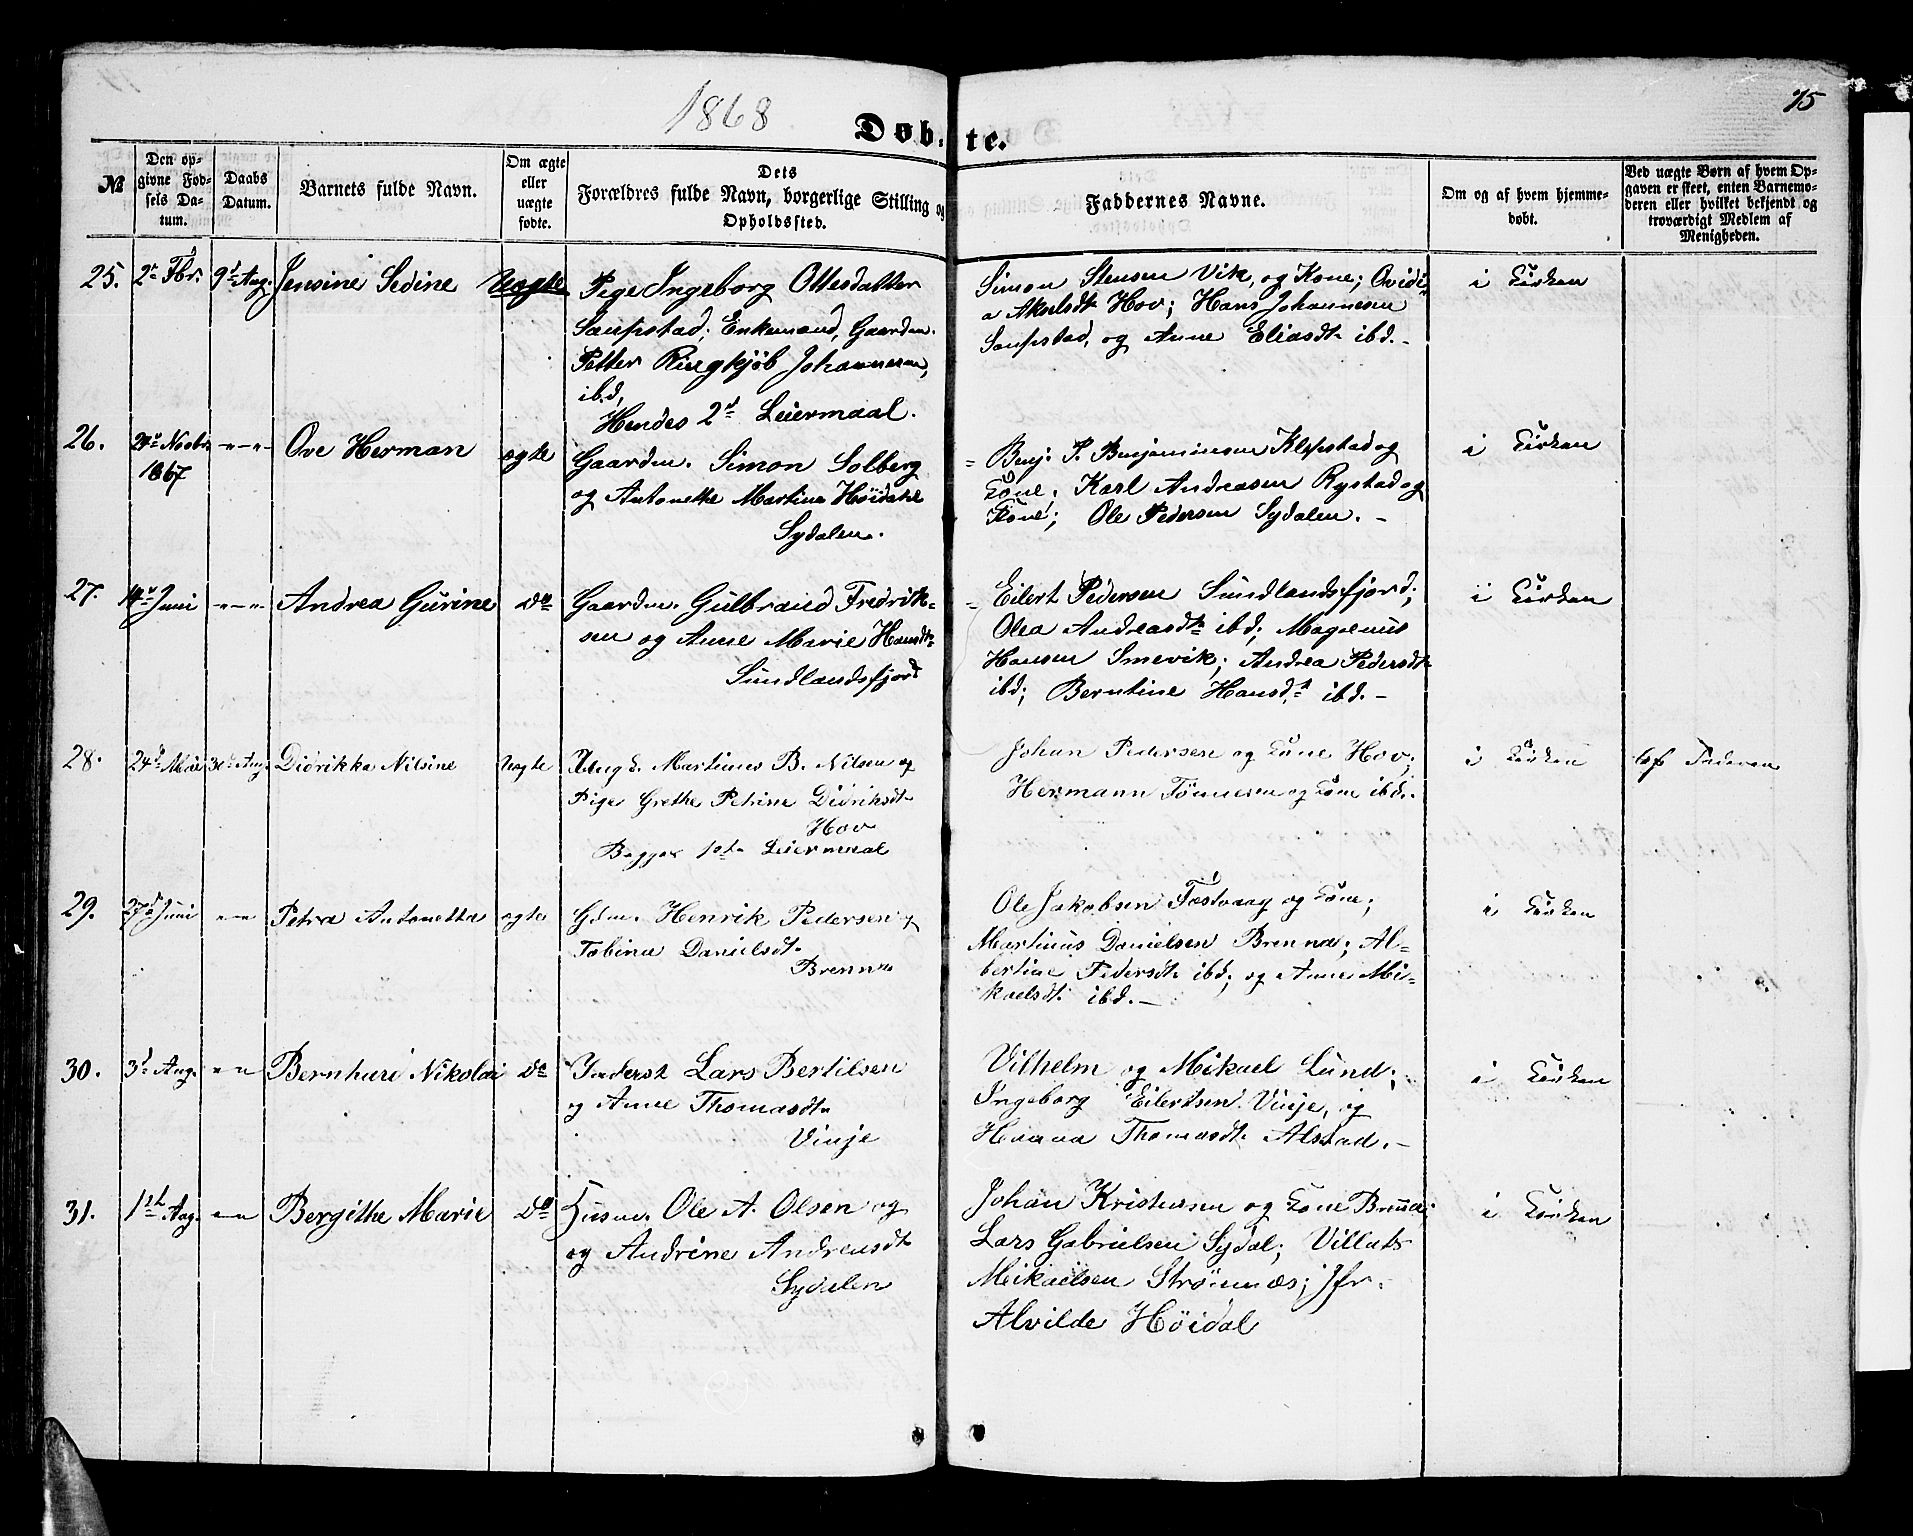 1868
75
Døbte.
№
Den opgivne Fødsels Datum.
Daabs Datum.
Barnets fulde Navn.
Om ægte eller uægte fødte.
Dets Forældres fulde Navn, borgerlige Stilling og Opholdssted.
Faddernes Navne.
Om og af hvem hjemmedøbt.
Ved uægte Børn af hvem Opgaven er skeet, enten Barnemoderen eller hvilket bekjendt og troværdigt Medlem af Menigheden.
25. 2d Fbr. 9d Aug. Jensine Sedine Uægte
Pige Ingeborg Ottesdatter
Saupstad; Enkemand, Gaardm.
Petter Ringkjöb Johannesen,
ibd,
Hendes 2d Leiermaal.
Simon Stensen Vik, og Kone; Ovidi
a Akselsdt Hov; Hans Johannesen
Saupstad, og Anne Eliasdt ibd.-
i Kirken
26. Novbr 1867 -"-"- Ove Herman ægte
Gaardm. Simon Solberg
og Antonette Martine Höidahl
Sydalen.
Benj. P. Benjaminsen Klepstad og
Kone; Karl Andreasen Rystad og
Kone; Ole Pedersen Sydalen.-
i Kirken
27. 14d Juni -"-"- Andrea Gurine do
Gaardm. Gulbrand Fredrik-
sen og Anne Marie Hansdt
Sundlandsfjord
Eilert Pedersen Sundlandsfjord;
Olea Andreasdt ibd; Magnus
Hansen Smevik; Andrea Pedersdt
ibd; Berntine Hansdt ibd.-
i Kirken
28. 24d Mai Aug. Didrikka Nilsine uægte
Ungk. Martinus B. Nilsen og
Pige Grethe Petrine Didriksdt
Hov
Begges 1ste Leiermaal
Johan Pedersen og Kone Hov;
Hermann Tönnesen og Kone ibd.
i Kirken
Faderen
29. 27d Juni -"- Petra Antonetta ægte
Gdm. Henrik Pedersen og
Tobina Danielsdt.
Brenna
Ole Jakobsen Festvaag og Kone;
Martinus Danielsen Brenna; Al-
bertine Pedersdt ibd; og Anne Mi-
kaelsdt. ibd.-
i Kirken
30. 3d Aug. -"- Bernhard Nikolai do
Inderst Lars Bertilsen
og Anne Thomasdt.
Vinje
Vilhelm og Mikael Lund;
Ingeborg Eilertsen Vinje, og
Hanna Thomasdt. Alstad.-
i Kirken
31. 1ste Aug. -"- Bergithe Marie do
Husm. Ole A. Olsen og
og Andrine Andreasdt
Sydalen
Johan Kristensen og Kone
Lars Gabrielsen Sydal;
Mikaelsen Strömnæs; Jfr.
Alvilde Höidal
i Kirken